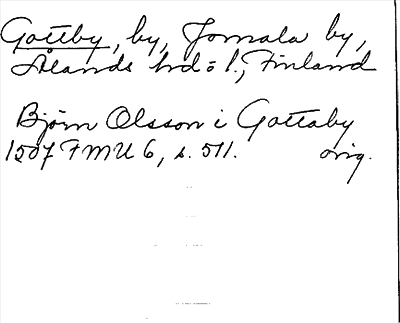 Gottby, by, Jomala by,
Ålands hd o l., Finland
Björn Olsson i Gottaby
1507 FMU 6, s. 511. orig.